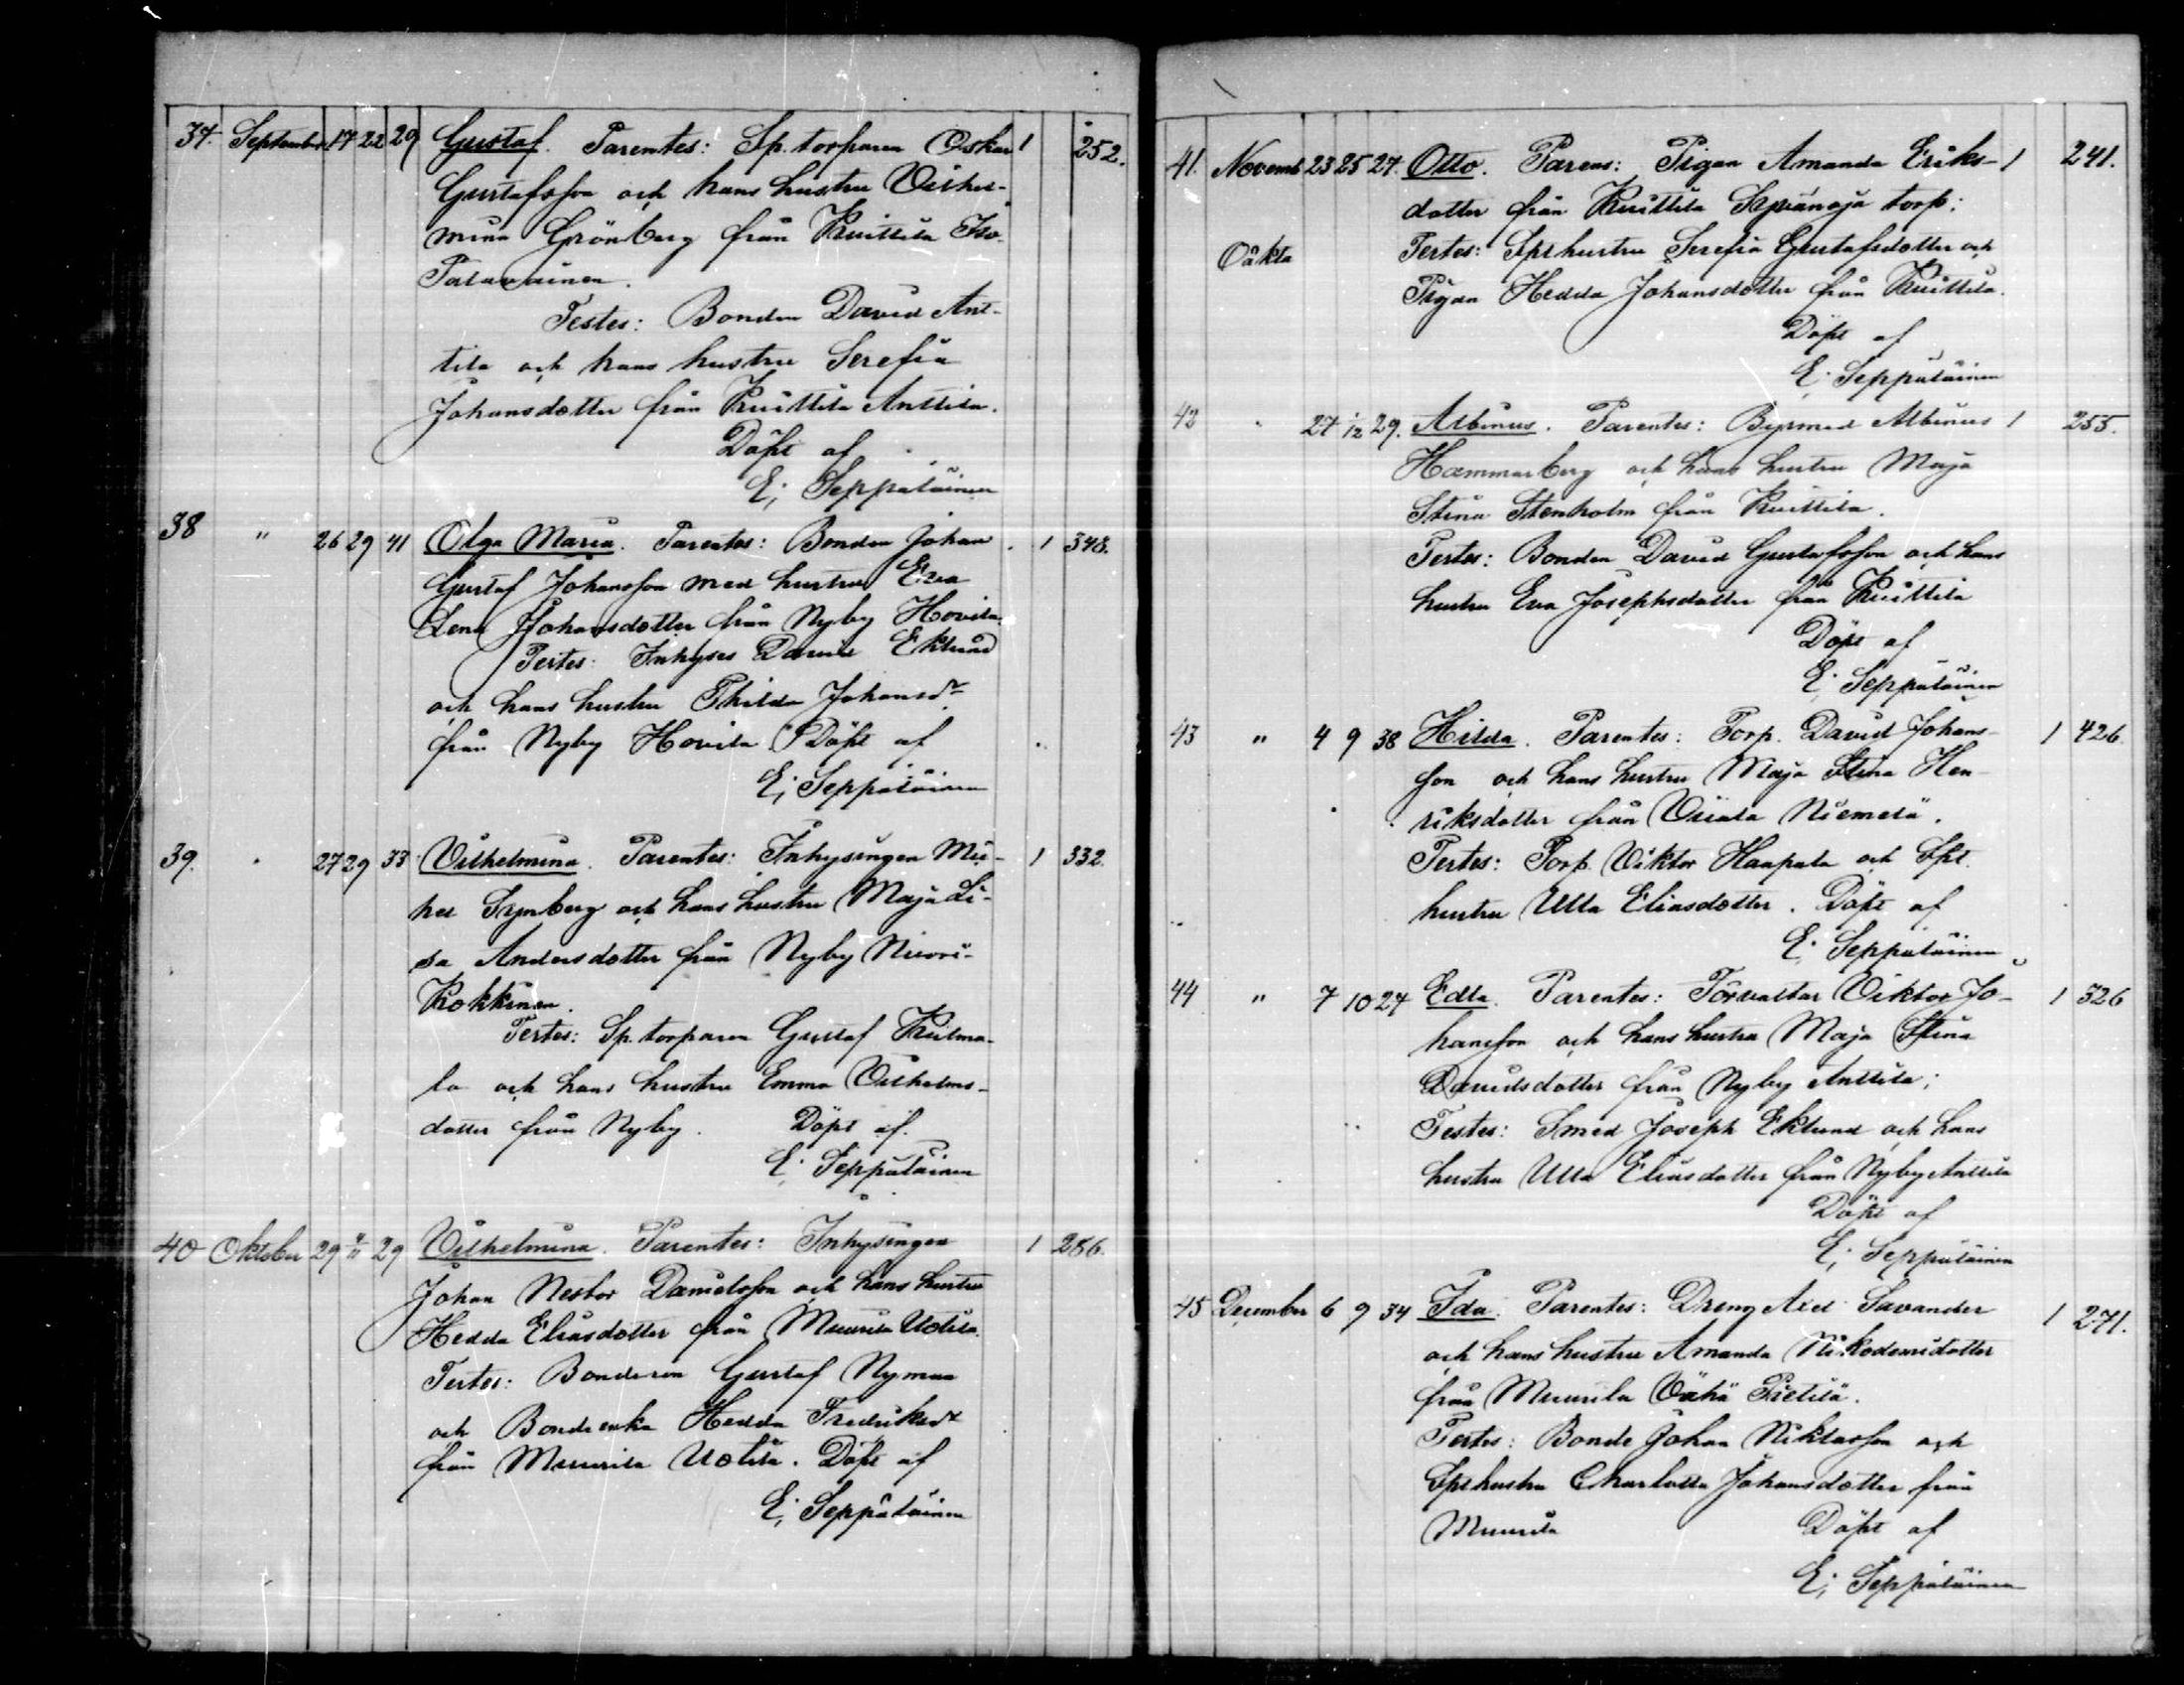 37. September 17 22 29 Gustaf. Parentes: Sp. torparen Oskar 1 252.
Gustafsson och hans hustru Vilhel-
mina Grönberg från Kuittila Iso-
Palavainen.
Testes: Bonden David Ant-
tila och hans hustru Serefia
Johansdotter från Kuittila Anttila.
Döpt af
E; Seppäläinen
38 " 26 29 41 Olga Maria. Parentes: Bonden Johan 1 348.
Gustaf Johansson med hustru Eva
Lena Johansdotter från Nyby Hovila.
Testes: Inhyses David Eklund
och hans hustru Thilda Johansdr
från Nyby Hovila. Döpt af
E; Seppäläinen
39. " 27 29 33 Vilhelmina. Parentes: Inhysingen Mi-
kel Synberg och hans hustru Maja Li- 1 332.
sa Andersdotter från Nyby Niovi-
Kokkinen.
Testes: Sp. torparen Gustaf Kulma-
la och hans hustru Emma Vilhelms-
dotter från Nyby. Döpt af.
E; Seppäläinen
40 Oktober 29 4/11 29 Vilhelmina. Parentes: Inhysingen 1 286.
Johan Nestor Danielsson och hans hustru
Hedda Eliasdotter från Muurila Uotila.
Testes: Bondeson Gustaf Nyman
och Bondeenka Hedda Fredriksdr
från Muurila Uotila. Döpt af
E; Seppäläinen
41. Novemb 23 25 27. Otto. Parens: Pigan Amanda Eriks- 1 241.
dotter från Kuittila torp:
Oäkta Testes: Spt hustru Serefia Gustafsdotter och
Pigan Hedda Johansdotter från Kuittila.
Döpt af
E; Seppäläinen
42 " 27 1/12 29. Albinus. Parentes: Bysmed Albinus 1 255.
Hammarberg och hans hustru Maja
Stina Stenholm från Kuittila.
Testes: Bonden David Gustafsson och hans
hustru Eva Josephsdotter från Kuittila
Döpt af
E; Seppäläinen
43 " 4 9 38 Hilda. Parentes: Torp. David Johans- 1 426.
son och hans hustru Maja Stina Hen-
riksdotter från Niemelä.
Testes: Torp. Viktor Haapala och Spt.
hustru Ulla Eliasdotter. Döpt af
E; Seppäläinen
44 " 7 10 27 Edla. Parentes: Förvaltar Viktor Jo- 1 326
hansson och hans hustru Maja Stina
Davidsdotter från Nyby Anttila;
Testes: Smed Joseph Eklund och hans
hustru Ulla Eliasdotter från Nyby Anttila
Döpt af
E; Seppäläinen
45 December 6 9 34 Ida. Parentes: Dreng Axel Savander 1 271.
och hans hustru Amanda Nikodemidotter
från Muurila Vähä Pietilä.
Testes: Bonde Johan Niklasson och
Spt hustru Charlotta Johansdotter från
Muurila Döpt af
E; Seppäläinen